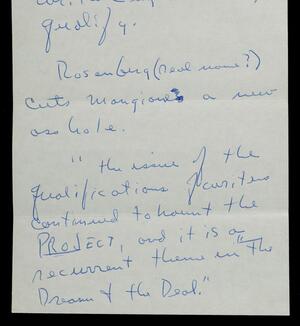 qualify.
Rosenberg (real name?)
cuts Mangione's a new
asshole.
"the issue of the
qualifications of writers
continued to haunt the
PROJECT, and it is a
recurrent theme in "The
Dream & the Deal."